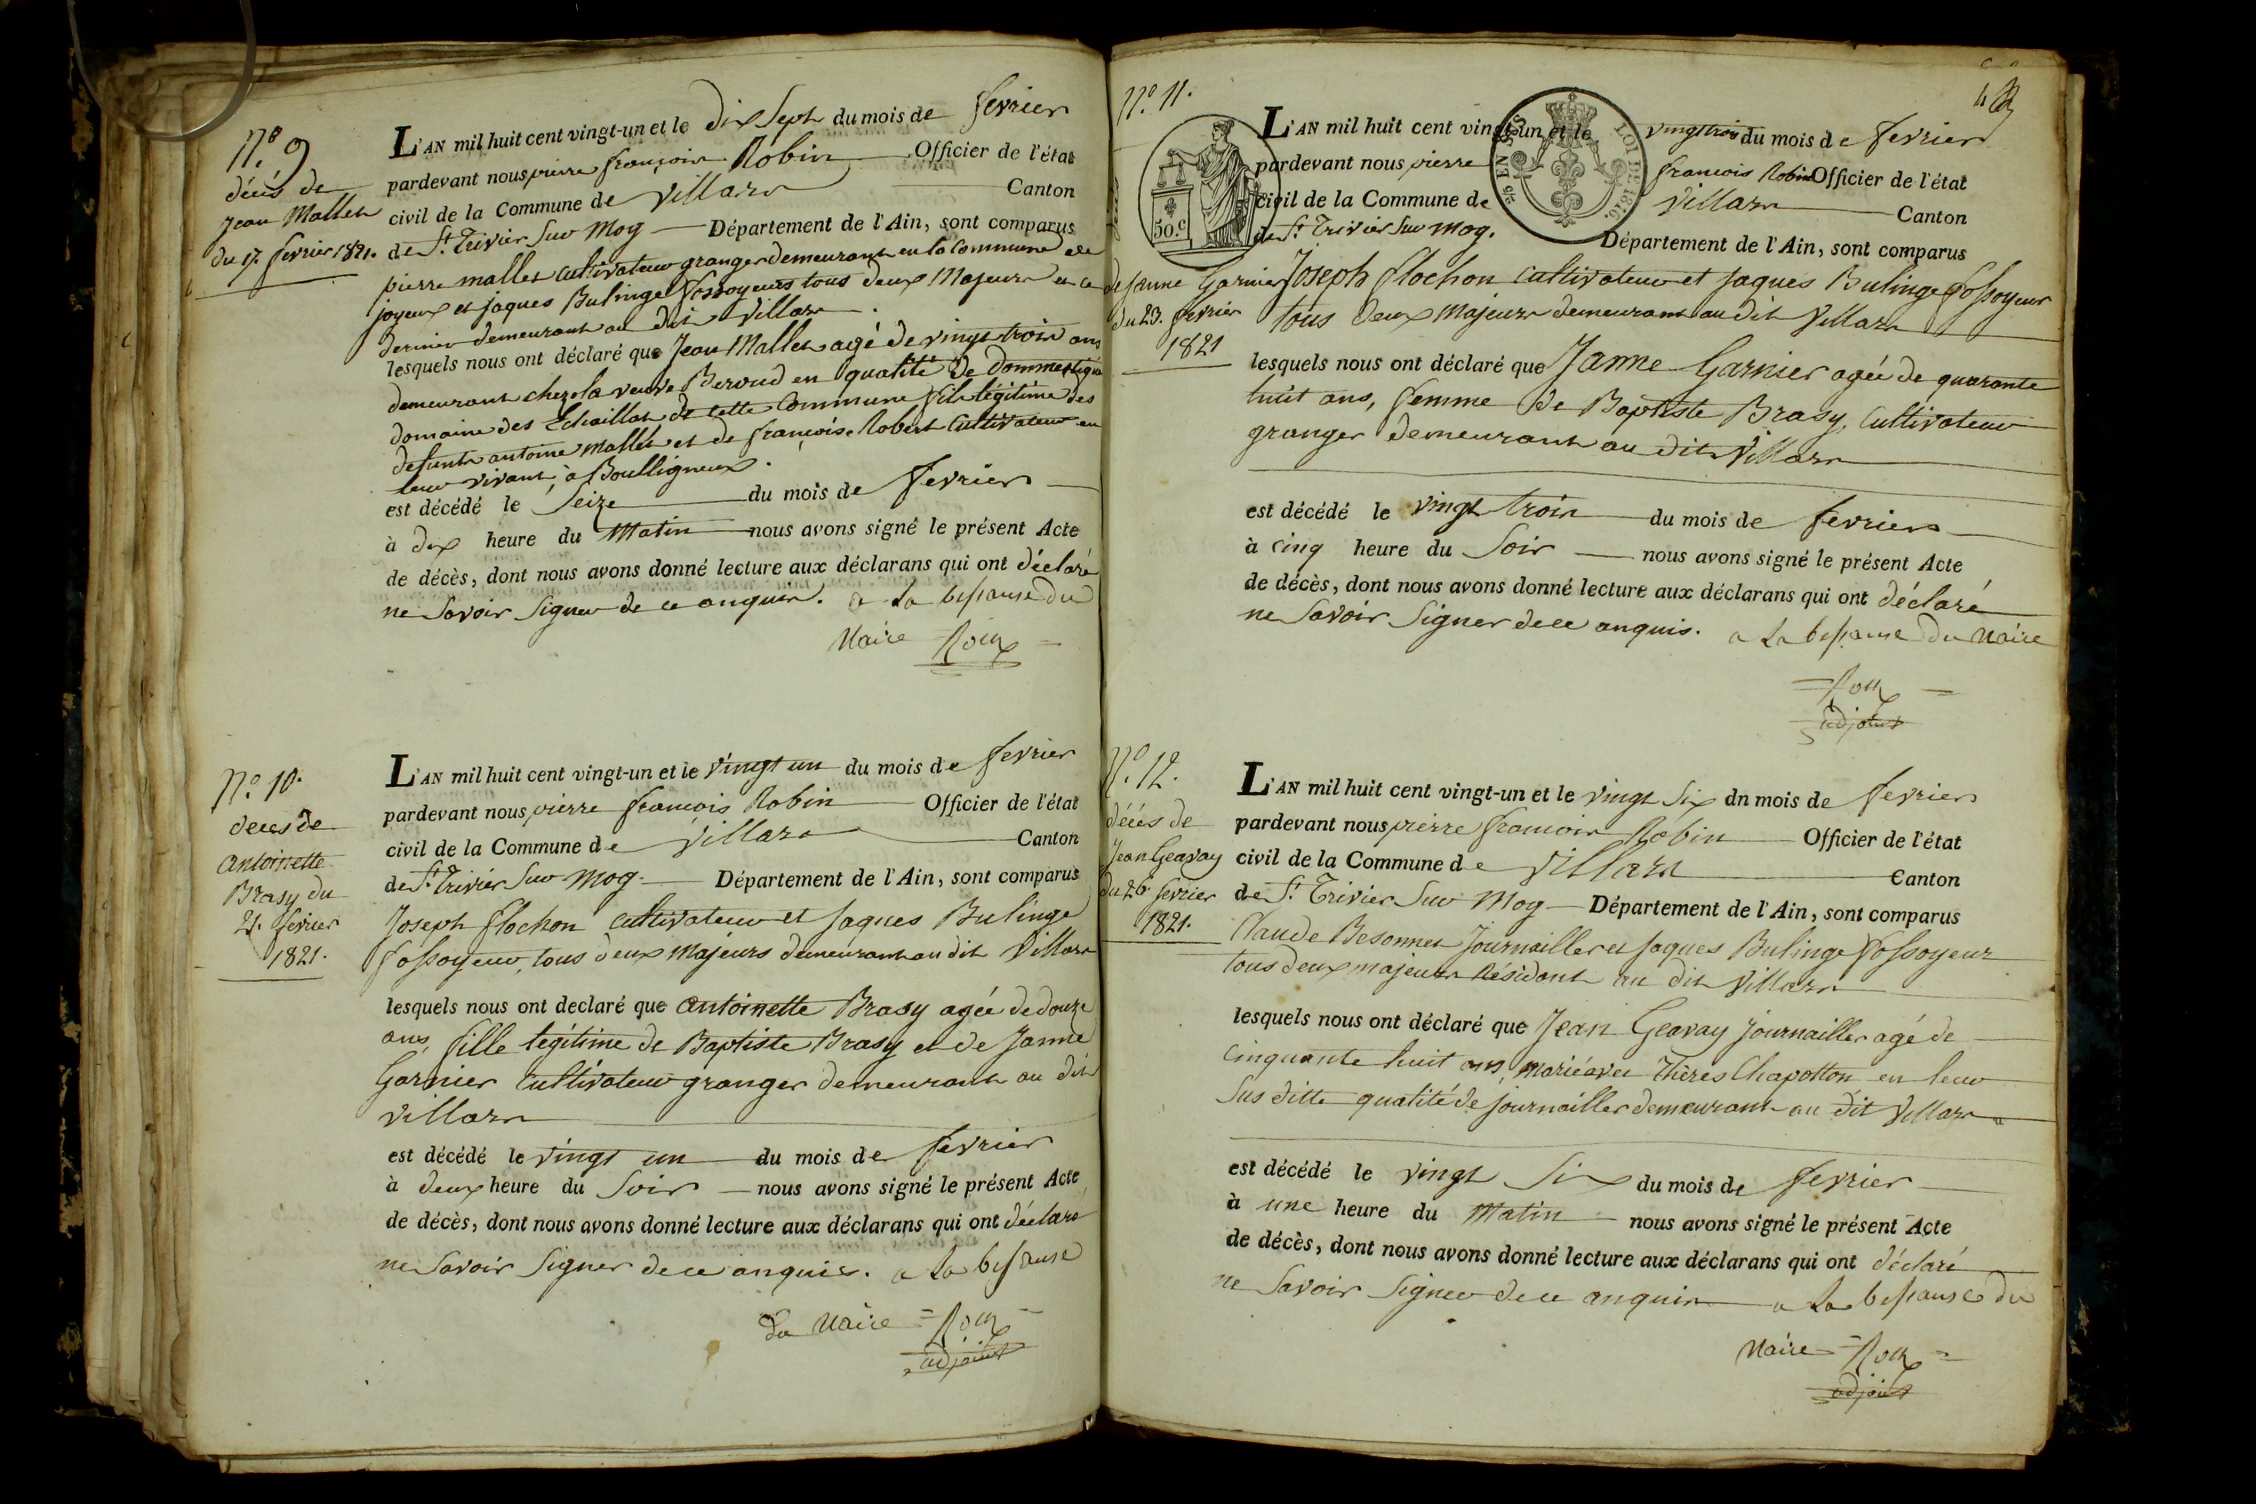 N.º 9
décés de
Jean Mallet
du 17. fevrier 1821.
L'AN mil huit cent vingt-un et le dix Sept du mois de fevrier
pardevant nous pierre françois Robin Officier de l'état
civil de la Commune de Villars Canton
de S.t Trivier Sur Mog Département de l'Ain, sont comparus
pierre mallet cultivateur granger demeurant en la Commune de
joyeux et jaques Bulinge fossoyeurs tous deux Majeurs et ce
dernier demeurant au dit Villars.
lesquels nous ont déclaré que Jean Mallet agé de vingt trois ans
demeurant chez la veuve Beroud en qualité de dommestique
domaine des Echaillat de cette Commune fils légitime des
defunts antoine mallet et de françoise Robert Cultivateur en
leur vivant, à Boulligneux.
est décédé le Seize du mois de fevrier
à dix heure du Matin nous avons signé le présent Acte
de décès, dont nous avons donné lecture aux déclarans qui ont déclaré
ne Savoir Signer de ce anquis. a la du
Maire Roux
N.º 10.
deces de
antoinette
Brasy du
21. fevrier
1821.
L'AN mil huit cent vingt-un et le vingt un du mois de fevrier
pardevant nous pierre françois Robin Officier de l'état
civil de la Commune de Villars Canton
de S.t Trivier Sur Mog. Département de l'Ain, sont comparus
Joseph flochon cultivateur et jaques Bulinge
fossoyeur, tous deux Majeurs demeurant au dit Villars
lesquels nous ont declaré que antoinette Brasy agée de douze
ans, fille légitime de Baptiste Brasy et de Janne
Garnier cultivateur granger demeurant au dit
Villars
est décédé le vingt un du mois de fevrier
à deux heure du Soir nous avons signé le présent Acte
de décès, dont nous avons donné lecture aux déclarans qui ont déclaré
ne Savoir Signer de ce anquis. a la
du Maire Roux
adjoint
N.º 11.
de janne Garnier
du 23. fevrier
1821
50.c
EN SUS
LOI DE 1816.
L'AN mil huit cent vingt-un et le vingt trois du mois de fevrier
pardevant nous pierre francois Robin Officier de l'état
civil de la Commune de Villars Canton
de S.t Trivier Sur Mog. Département de l'Ain, sont comparus
Joseph flochon cultivateur et jaques Bulinge fossoyeur
tous deux Majeurs demeurant au dit Villars
lesquels nous ont déclaré que Janne Garnier agée de quarante
huit ans, femme de Baptiste Brasy, Cultivateur
granger demeurant au dit Villars
est décédé le vingt trois du mois de fevrier
à cinq heure du Soir nous avons signé le présent Acte
de décès, dont nous avons donné lecture aux déclarans qui ont déclaré
ne Savoir Signer de ce anquis. a la du Maire
Roux
adjoint
N.º 12.
décés de
Jean Geavay
du 26 fevrier
1821.
L'AN mil huit cent vingt-un et le vingt Six dn mois de fevrier
pardevant nous pierre francois Robin Officier de l'état
civil de la Commune de Villars Canton
de S.t Trivier Sur Mog Département de l'Ain, sont comparus
Claude Besonnet Journailler et jaques Bulinge fossoyeur
tous deux majeurs Résidant au dit Villars
lesquels nous ont déclaré que Jean Geavay Journailler agé de
cinquante huit ans, marié avec Thères Chapotton en leur
Sus ditte qualité de journailler demeurant au dit Villars
est décédé le vingt Six du mois de fevrier
à une heure du Matin nous avons signé le présent Acte
de décès, dont nous avons donné lecture aux déclarans qui ont déclaré
ne Savoir Signer de ce anquis a la du
Maire Roux
adjoint